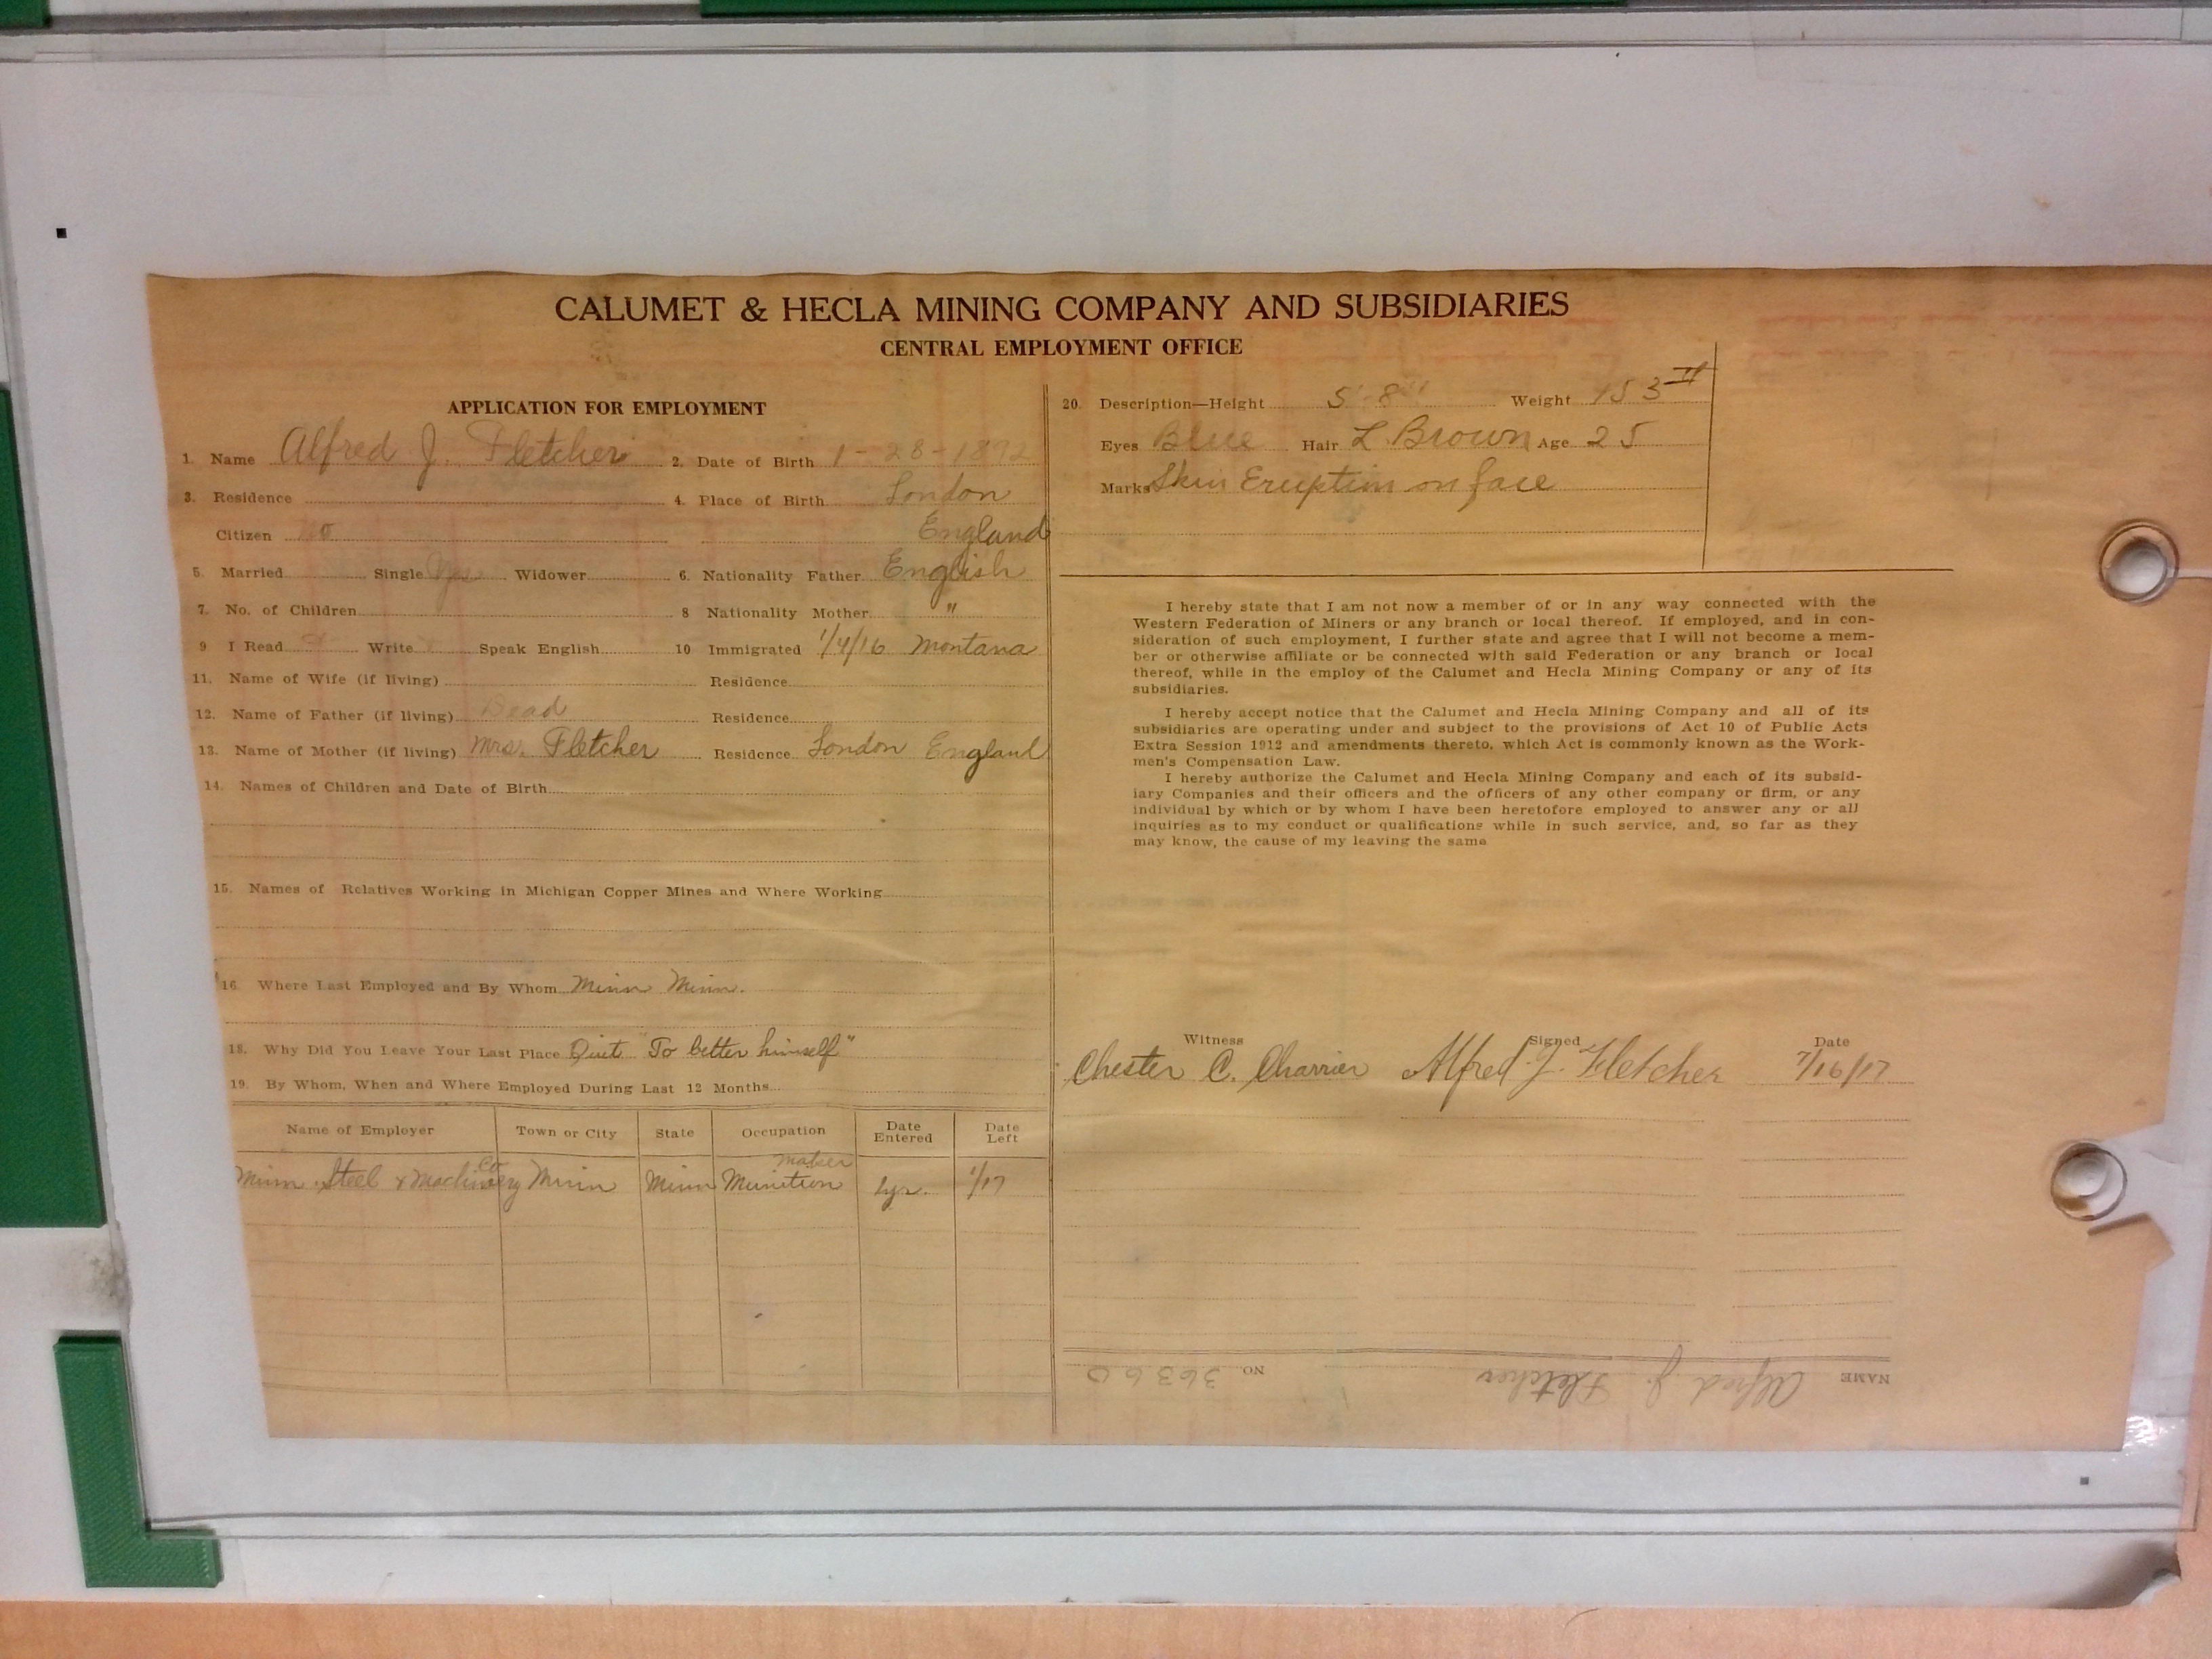 CALUMET & HECLA MINING COMPANY AND SUBSIDIARIES
CENTRAL EMPLOYMENT OFFICE
APPLICATION FOR EMPLOYMENT
1. Name Alfred J. Fletcher 2. Date of Birth 1-28-1892
3. Residence 4. Place of Birth London
Citizen no England
5. Married Single Yes Widower 6. Nationality Father English
7. No. of Children 8 Nationality Mother "
9 I Read Write Speak English 10 Immigrated 1/4/16 Montana
11. Name of Wife (if living) Residence
12. Name of Father (if living) Dead Residence
13. Name of Mother (if living) Mrs. Fletcher Residence London England
14. Names of Children and Date of Birth
15. Names of Relatives Working in Michigan Copper Mines and Where Working
16. Where Last Employed and By Whom Minn Minn.
18. Why Did You Leave Your Last Place Quit "To better himself"
19. By Whom, When and Where Employed During Last 12 Months
Name of Employer Town or City State Occupation Date Entered Date Left
Minn Steel & Machinery Co Minn Minn Munition maker 1 yr. 1/17
20. Description—Height 5'-8" Weight 153#
Eyes Blue Hair L Brown Age 25
Marks Skin Eruption on face
I hereby state that I am not now a member of or in any way connected with the
Western Federation of Miners or any branch or local thereof. If employed, and in con-
sideration of such employment, I further state and agree that I will not become a mem-
ber or otherwise affiliate or be connected with said Federation or any branch or local
thereof, while in the employ of the Calumet and Hecla Mining Company or any of its
subsidiaries.
I hereby accept notice that the Calumet and Hecla Mining Company and all of its
subsidiaries are operating under and subject to the provisions of Act 10 of Public Acts
Extra Session 1912 and amendments thereto, which Act is commonly known as the Work-
men's Compensation Law.
I hereby authorize the Calumet and Hecla Mining Company and each of its subsid-
iary Companies and their officers and the officers of any other company or firm, or any
individual by which or by whom I have been heretofore employed to answer any or all
inquiries as to my conduct or qualifications while in such service, and, so far as they
may know, the cause of my leaving the same
Witness Signed Date
Chester C. Charrier Alfred J. Fletcher 7/16/17
NAME Alfred J. Fletcher NO. 36360